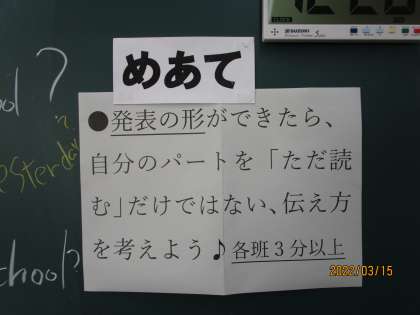 めあて
●発表の形ができたら、
自分のパートを「ただ読
む」だけではない、伝え方
を考えよう♪各班３分以上
2022/03/15
?
?
esterday
chool?
SUZUKI